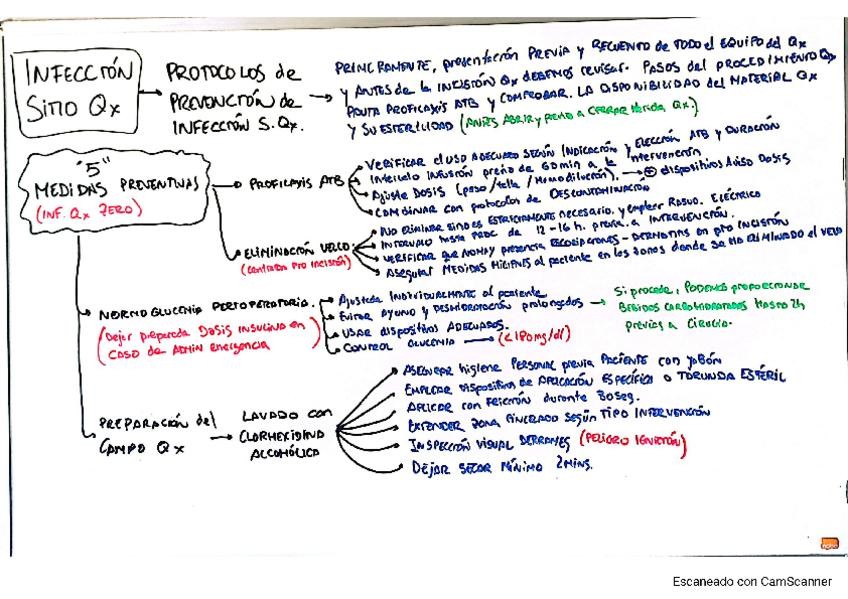 INFECCIÓN
SITIO Qx
PROTOCOLOS de
PREVENCIÓN de
INFECCIÓN S.Qx.
PRIMERAMENTE, presentación PREVIA y RECUENTO de TODO el EQUIPO del Qx
y ANTES de la INCISIÓN Qx DEBEMOS revisar. PASOS del PROCEDIMIENTO Qx
PAUTA PROFILAXIS ATB y COMPROBAR. LA DISPONIBILIDAD del MATERIAL Qx
y SU ESTERILIDAD (ANTES ABRIR y PREVIO a CERRAR Herida Qx.)
"5"
MEDIDAS PREVENTIVAS
(INF. Qx ZERO)
PROFILAXIS ATB
VERIFICAR el USO ADECUADO SEGÚN INDICACIÓN y ELECCIÓN ATB y DURACIÓN
Intervalo INFUSIÓN previo de 60min a la intervención
Ajuste DOSIS (peso/talla/Hemodilución). → dispositivos Aviso DOSIS
COMBINAR con protocolos de DESCONTAMINACIÓN
ELIMINACIÓN VELLO
No eliminar sino es ESTRICTAMENTE necesario. y emplear RASUR. ELÉCTRICO
INTERVALO hasta PROC de 12-16h. previa a INTERVENCIÓN.
VERIFICAR que NO HAY presencia EXCORIACIONES - DERMATITIS en pro INCISIÓN
Asegurar MEDIDAS HIGIENE al paciente en las zonas donde se ha ELIMINADO el VELLO
NORMOGLUCEMIA PERIOPERATORIA.
(Dejar preparada DOSIS INSULINA en
CASO de ADMIN emergencia)
Ajustada INDIVIDUALMENTE al paciente
Evitar AYUNO y DESHIDRATACIÓN prolongados
USAR dispositivos ADECUADOS.
CONTROL GLUCEMIA → (<180mg/dl)
Si procede, PODEMOS proporcionar
BEBIDAS CARBOHIDRATADAS HASTA 2h
previas a CIRUGÍA.
PREPARACIÓN del
CAMPO Qx
LAVADO con
CLORHEXIDINA
ALCOHÓLICA
ASEGURAR higiene PERSONAL previa PACIENTE con JABÓN
EMPLEAR DISPOSITIVOS de APLICACIÓN ESPECÍFICA o TORUNDA ESTÉRIL
APLICAR con FRICCIÓN durante 30seg.
EXTENDER ZONA PINCELADO SEGÚN TIPO INTERVENCIÓN
INSPECCIÓN VISUAL DERRAMES (PELIGRO IGNICIÓN)
DEJAR SECAR MÍNIMO 2MINS.
Escaneado con CamScanner